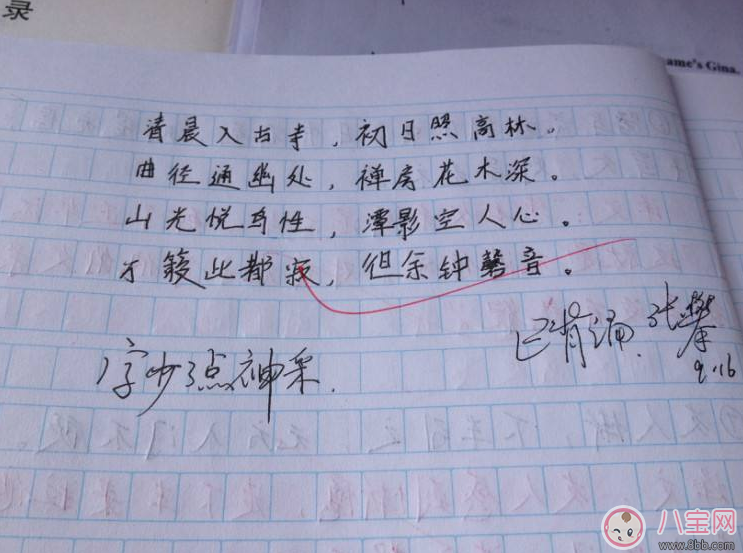 录
ame's Gina.
清晨入古寺，初日照高林。
曲径通幽处，禅房花木深。
山光悦鸟性，潭影空人心。
万籁此都寂，但余钟磬音。
字少了点神采.
已背诵. 张攀
9.16
八宝网
www.8bb.com